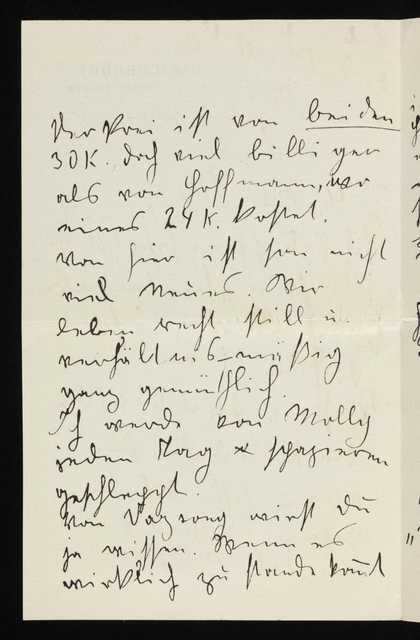 Der Preis ist von beiden
30 K. doch viel billiger
als von Hoffmann, wo
eines 24 K. kostet.
Von hier ist sonst nicht
viel Neues. Wir
leben recht still u.
verhältnismäßig
ganz gemüthlich.
Ich werde von Molly
jeden Tag spazieren
geschleppt.
Von wirst Du
ja wissen. Wenn es
wirklich zu stande kom̅t